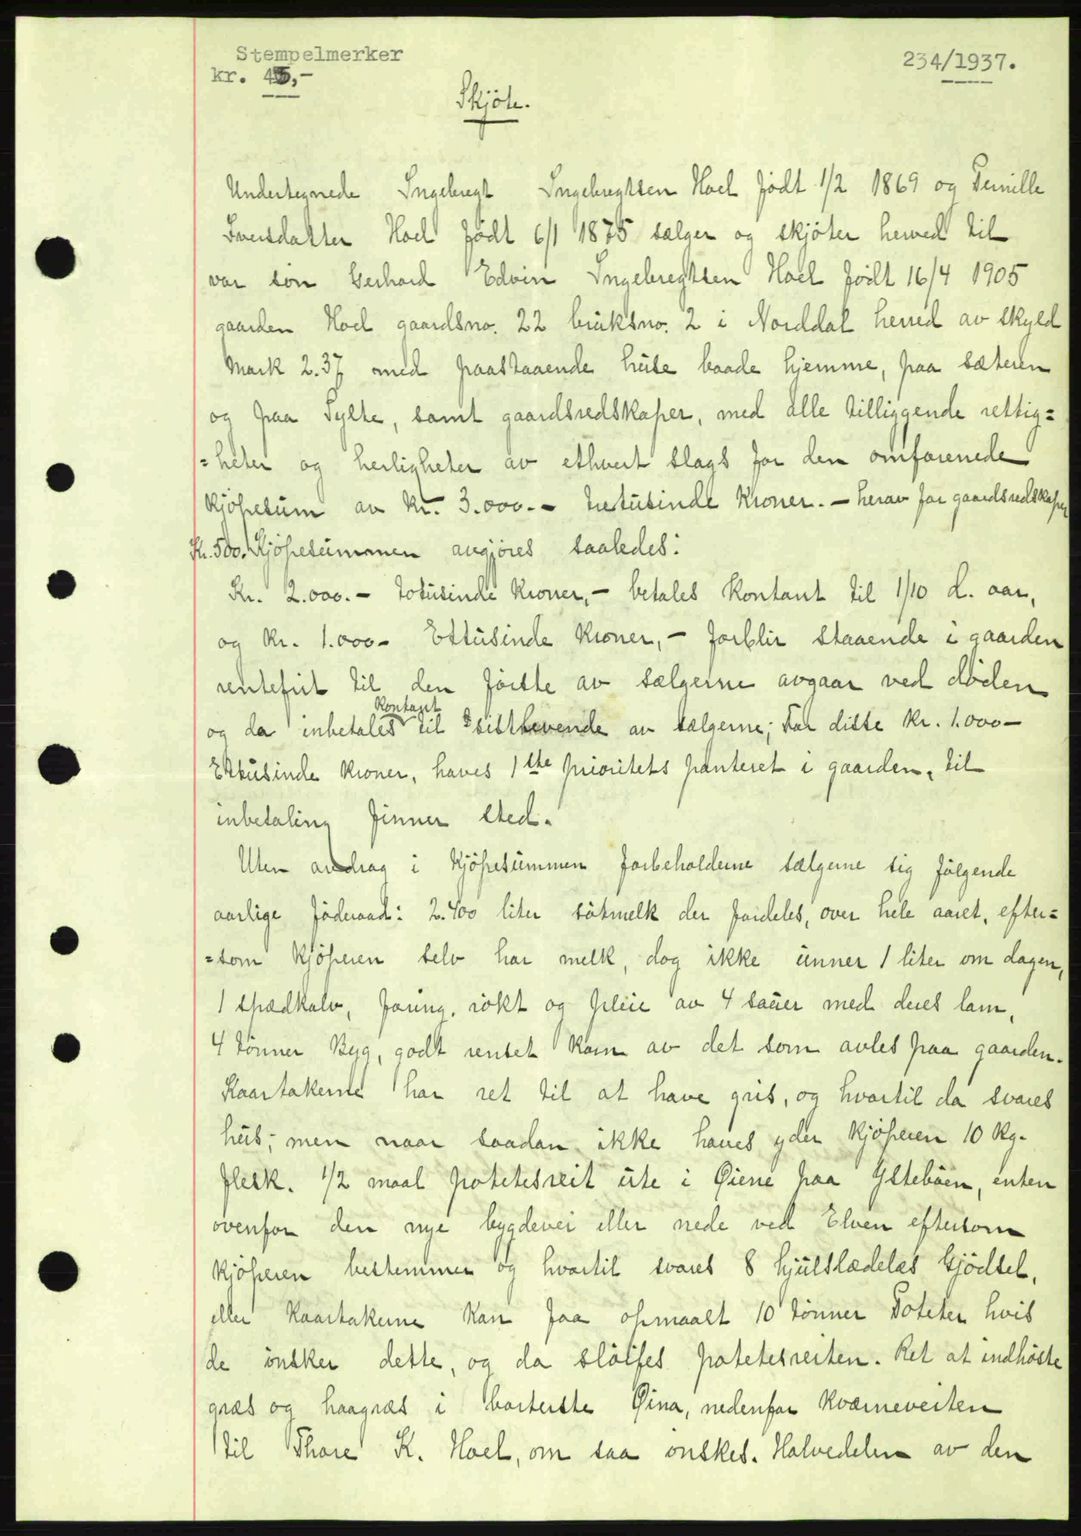 Stempelmerker
kr. 45,-
234/1937.
Skjöte.
Undertegnede Ingebregt Ingebregtsen Hoel födt 1/2 1869 og Pernille
Iversdatter Hoel födt 6/1 1875 sælger og skjöter herved til
vor sön Gerhard Edvin Ingebregtsen Hoel födt 16/4 1905
gaarden Hoel gaardsno. 22 bruksno. 2 i Norddal herred av skyld
Mark 2.37 med paastaaende huse baade hjemme, paa sæteren
og paa Sylte, samt gaardsredskaper, med alle tilliggende rettig=
=heter og herligheter av ethvert slags for den omforenede
kjöpesum av kr. 3.000.- tretusinde kroner. - herav for gaardsredskaper
Kr. 500. Kjöpesummen avgjöres saaledes:
Kr. 2.000.- totusinde kroner,- betales kontant til 1/10 d. aar,
og kr. 1.000- Ettusinde kroner,- forblir staaende i gaarden
rentefrit til den förste av sælgerne avgaar ved döden
og da inbetales kontant til sistlevende av sælgerne; For disse kr. 1.000-
Ettusinde kroner, haves 1ste prioritets panteret i gaarden, til
inbetaling finner sted.
Uten avdrag i kjöpesummen forbeholderne sælgerne sig fölgende
aarlige föderaad: 2.400 liter sötmelk der fordeles, over hele aaret, efter=
=som kjöperen selv har melk, dog ikke unner 1 liter om dagen,
1 spædkalv, foring, rökt og pleie av 4 sauer med deres lam,
4 tönner Byg, godt renset korn av det som avles paa gaarden.
Kaartakerne har ret til at have gris, og hvortil da svares
hus; men naar saadan ikke haves yder kjöperen 10 kg.
flesk. 1/2 maal potetesreit ute i Øiene paa Ysteböen, enten
ovenfor den nye bygdevei eller nede ved Elven eftersom
kjöperen bestemmer og hvortil svares 8 hjulslædelas Gjödsel,
eller kaartakerne kan faa opmaalt 10 tönner Poteter hvis
de önsker dette, og da slöifes potetesreiten. Ret at indhöste
græs og haagræs i borterste Øina, nedenfor kværneveiten
til Thore K. Hoel, om saa önskes. Halvedelen av den